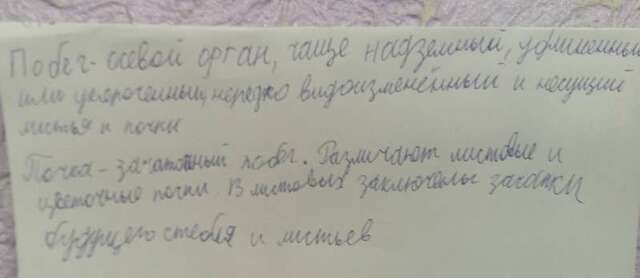 Побег - осевой орган, чаще надземный, удлиненный
или укороченный, нередко видоизменённый и несущий
листья и почки
Почка - зачаточный побег. Различают листовые и
цветочные почки. В листовых заключены зачатки
будущего стебля и листьев